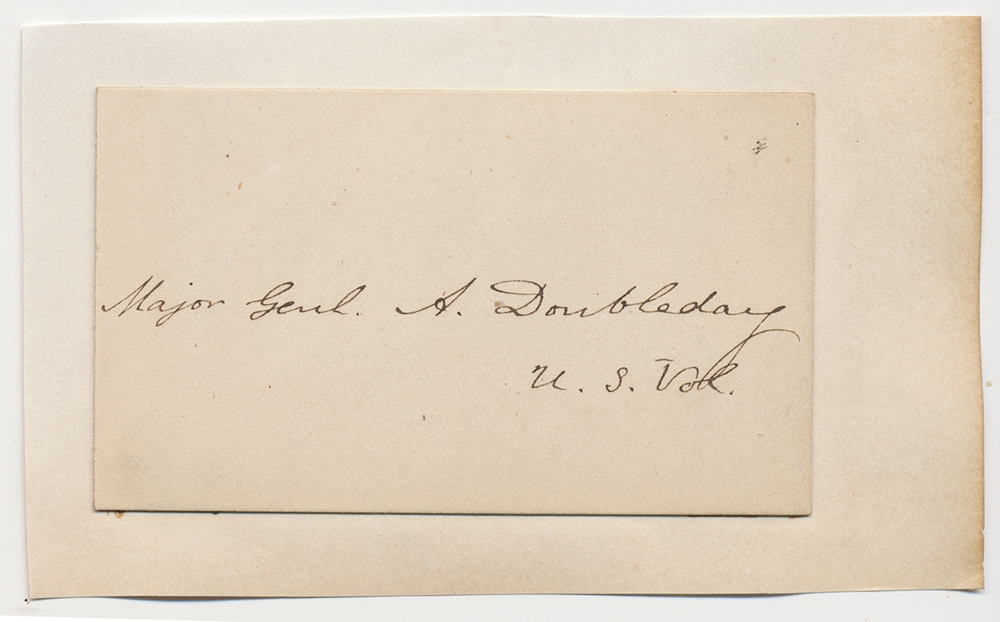 Major Genl. A. Doubleday
U. S. Vol.